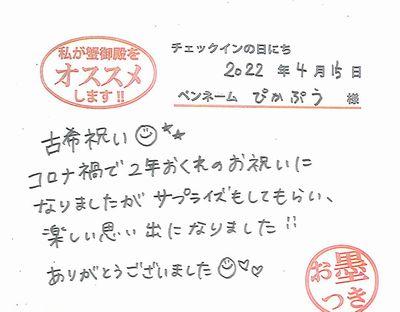 私が蟹御殿を
オススメ
します!!
チェックインの日にち
2022年4月15日
ペンネーム ぴかぷう 様
古希祝い
コロナ禍で2年おくれのお祝いに
なりましたが サプライズもしてもらい、
楽しい思い出になりました!!
ありがとうございました
お墨
つき